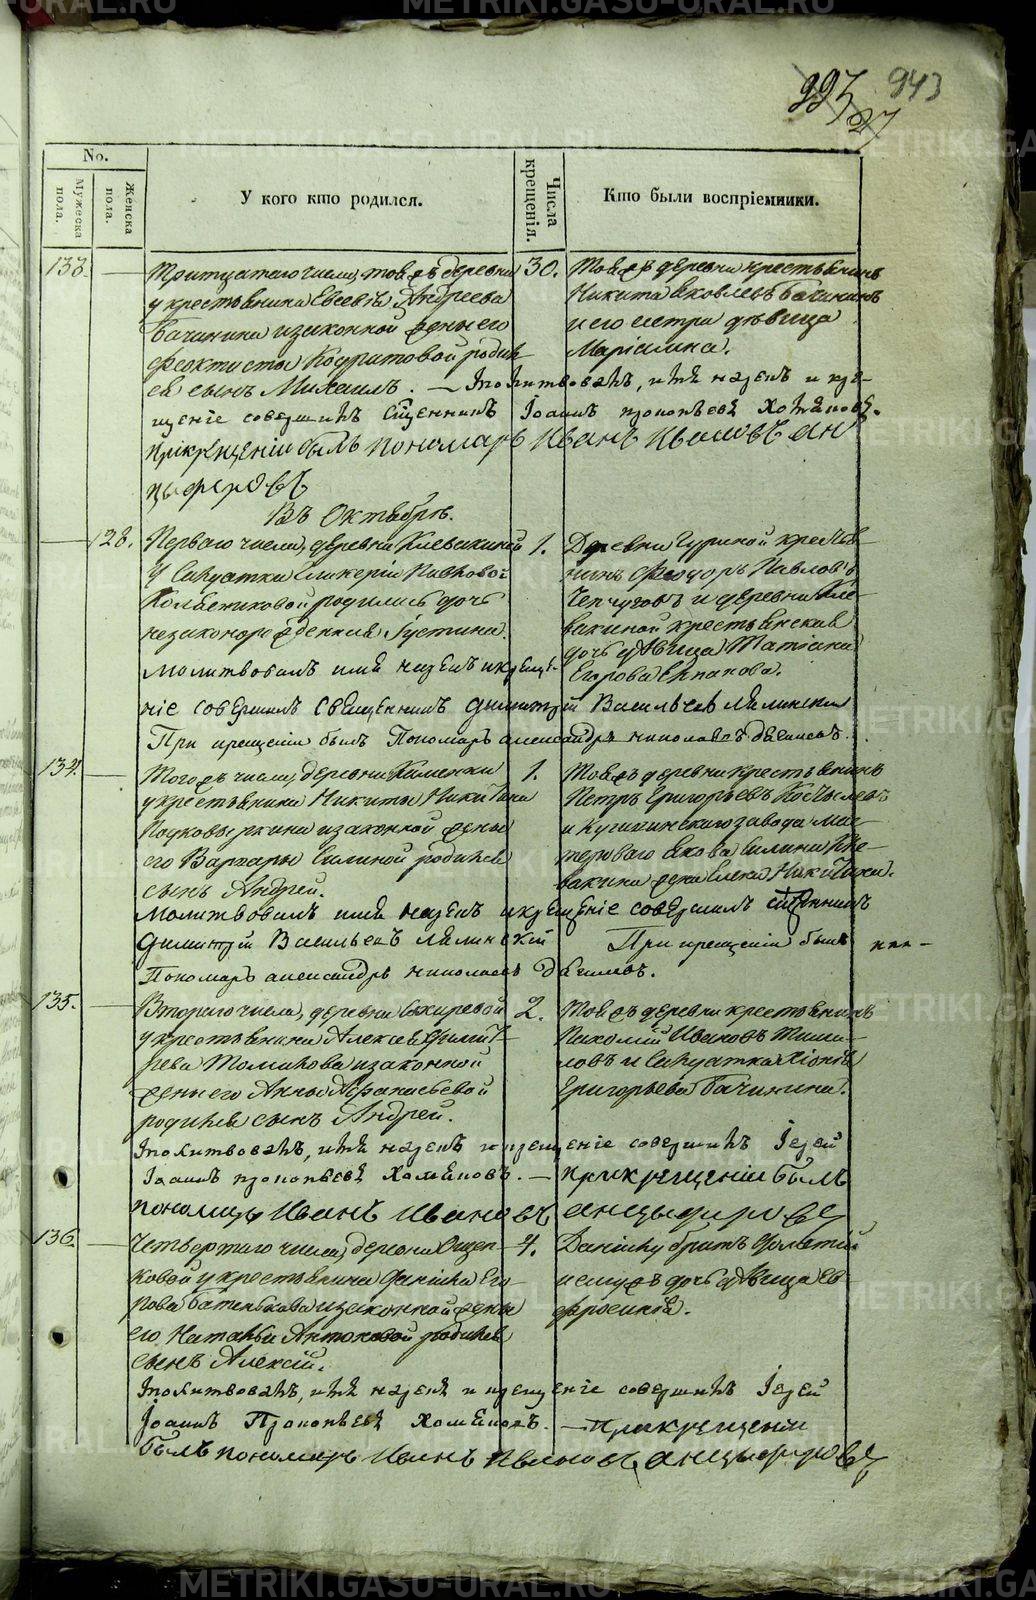 943
27
No.
Мужеска пола.
Женска пола.
У кого кто родился.
Числа крещенія.
Кто были воспріемники.
133.
Тритцатаго числа, тояжъ деревни
у крестьянина Евсевія Андреева
Бачинина изаконной жены его
Феоктисты Кодратовой родил
ся сынъ Михаилъ. — Молитвовалъ, имя нарекъ и кре-
щеніе совершилъ Сщенникъ Іоаннъ Прокопьевъ Хомяковъ.
при крещеніи былъ пономарь Иванъ Ивановъ Ан
цыферовъ
30.
Тояжъ деревни крестьянинъ
Никита Яковлевъ Бачининъ
и его сестра дѣвица
Маріамна.
Въ Октябрѣ.
128.
Перваго числа, деревни Клевакиной
у Салдатки Гликеріи Павловой
Колбениковой родилась дочь
незаконорожденная Іустина.
Молитвовалъ имя нарекъ и креще-
ніе совершилъ Священникъ Димитрій Васильевъ Лялински
При крещеніи былъ Пономарь Александръ Николаевъ
1.
Деревни Гуриной крестья-
нинъ Феодоръ Павловъ
Чепчуговъ и деревни Кле-
вакиной крестьянская
дочь дѣвица Татіана
Егорова Епанова.
134.
Того жъ числа, деревни Каменки
у крестьянина Никиты Никитина
Подковыркина изаконной жены
его Варвары Силиной родился
сынъ Андрей.
Молитвовалъ имя нарекъ и крещеніе совершилъ сщенникъ
Димитрій Васильевъ Лялинскій При крещеніи былъ
Пономарь Александръ Николаевъ
1.
Тояжъ деревни крестьянинъ
Петръ Григорьевъ
и завода мас-
тероваго Якова Силина Кле-
вакина жена Елена Никитина.
135.
Втораго числа, деревни Южиревой
у крестьянина Алексѣя Димит-
ріева Томилова изаконной
жены его Анны Афанасьевой
родился сынъ Андрей.
Молитвовалъ, имя нарекъ и крещеніе совершилъ Іерей
Іоаннъ Прокопьевъ Хомяковъ. — При крещеніи былъ
пономарь Иванъ Ивановъ Анцыферовъ
2.
Тояжъ деревни крестьянинъ
Пахомій Ивановъ Томи-
ловъ и Салдатка Хіонія
Григорьева Бачинина.
136.
Четвертаго числа, деревни Ощеп-
ковой у крестьянина Даніила Его-
рова Батенькова изаконной жены
его Натальи Антоновой родился
сынъ Алексій.
Молитвовалъ, имя нарекъ и крещеніе совершилъ Іерей
Іоаннъ Прокопьевъ Хомяковъ. — При крещеніи
былъ пономарь Иванъ Ивановъ Анцыферовъ
4.
Даніилу братъ
и емужъ дочь дѣвица Ев
фросинія.
METRIKI.GASO-URAL.RU